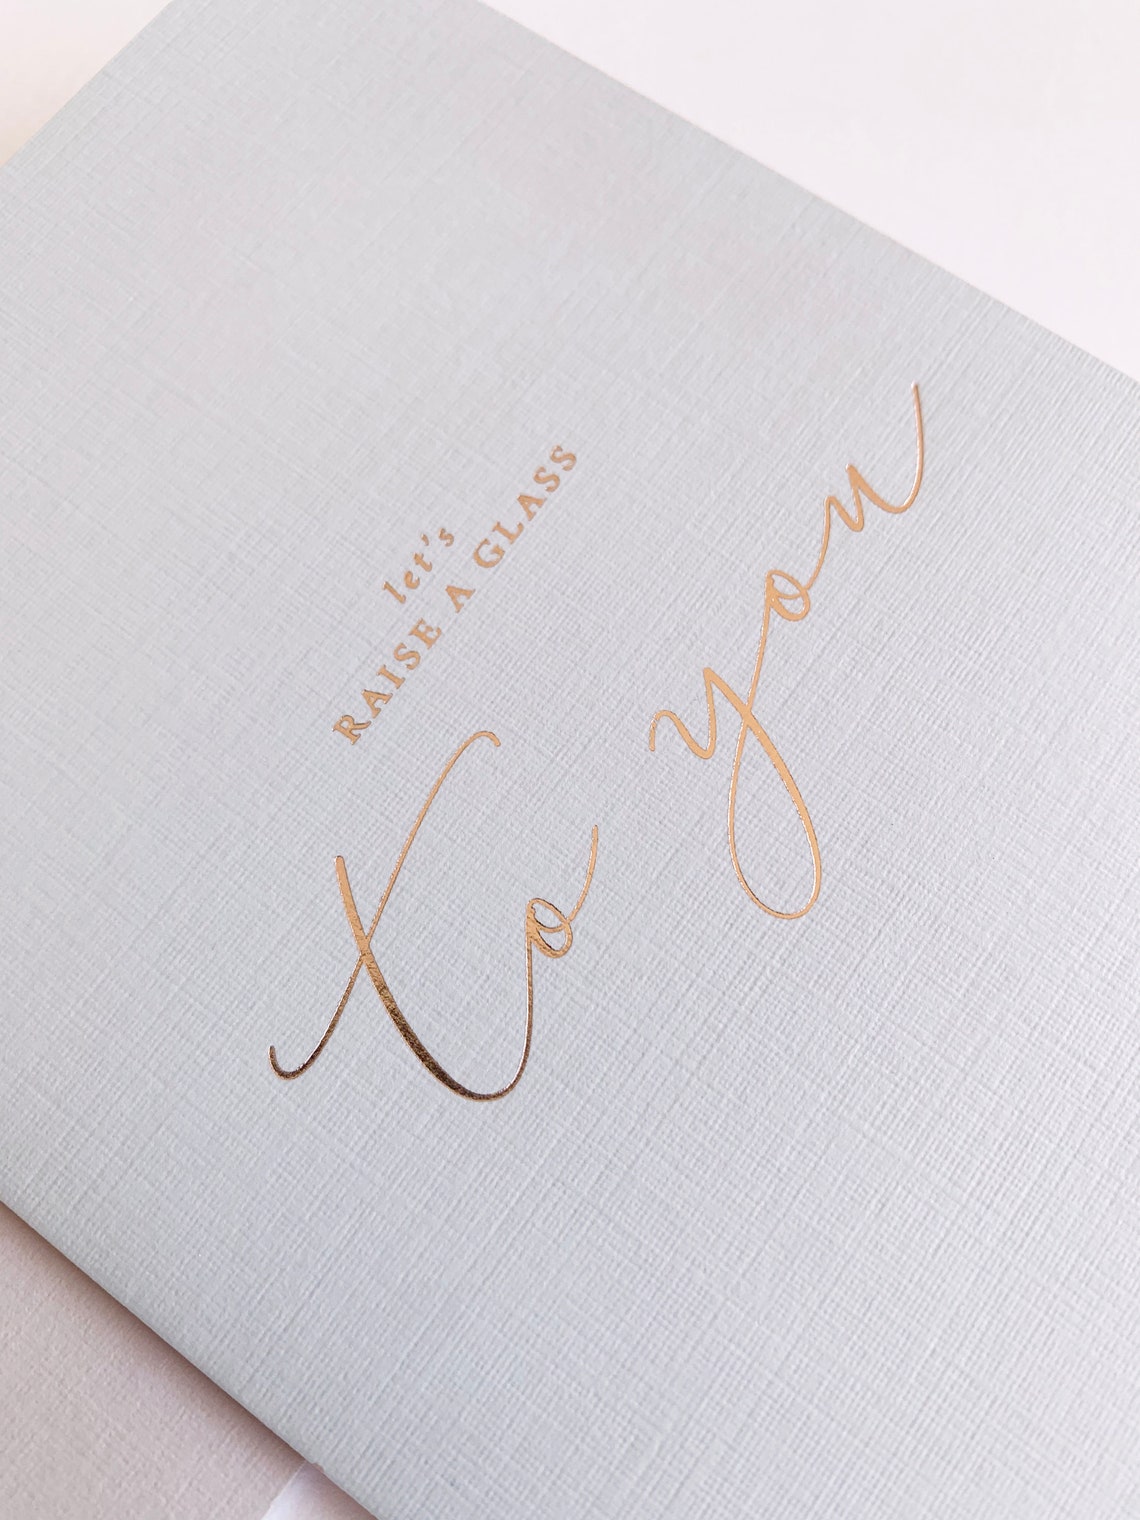 let's
RAISE A GLASS
to you